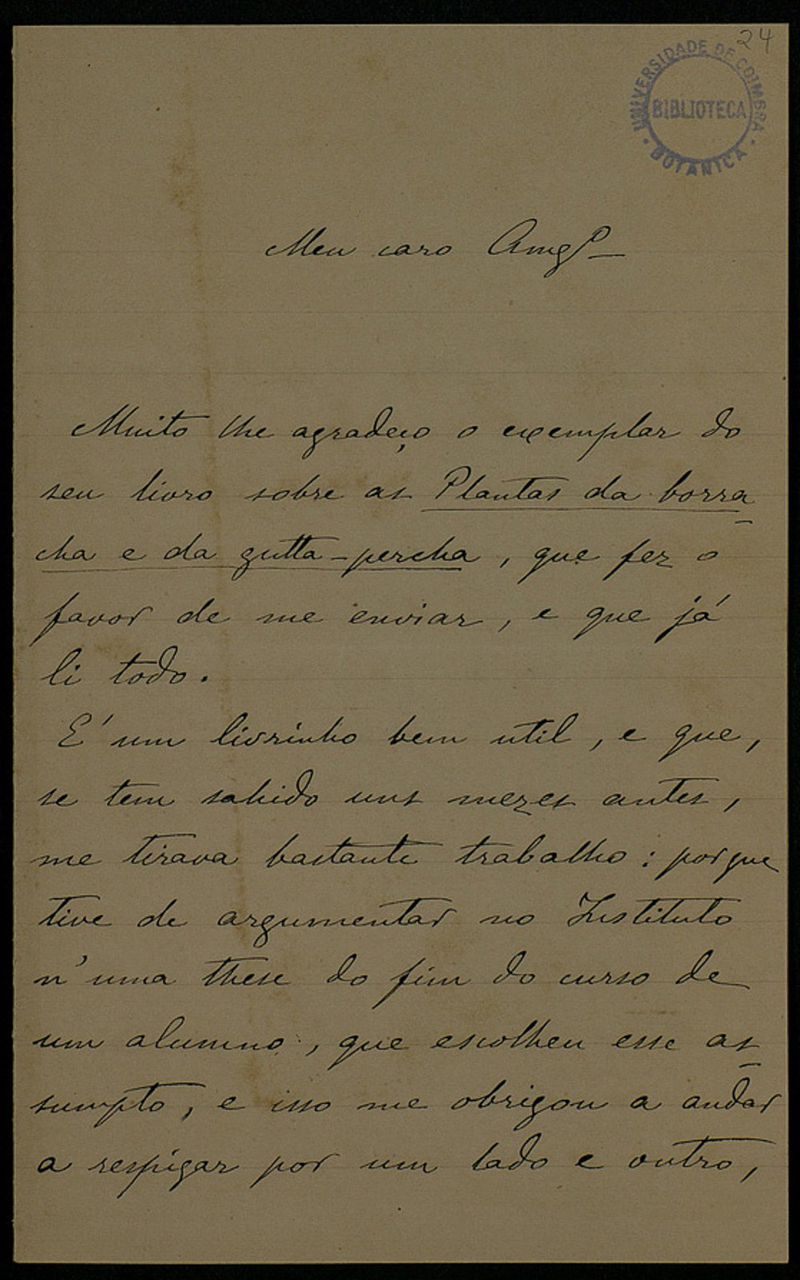 24
UNIVERSIDADE DE COIMBRA
BIBLIOTECA
BOTANICA
Meu caro Amgº
Muito lhe agradeço o exemplar do
seu livro sobre as Plantas da borra-
cha e da gutta-percha, que fez o
favor de me enviar, e que já
li todo.
E' um livrinho bem util, e que,
se tem sahido uns mezes antes,
me tirava bastante trabalho: porque
tive de argumentar no Instituto
n'uma these do fim do curso de
um alumno, que escolheu esse as-
sumpto, e isso me obrigou a andar
a respigar por um lado e outro,